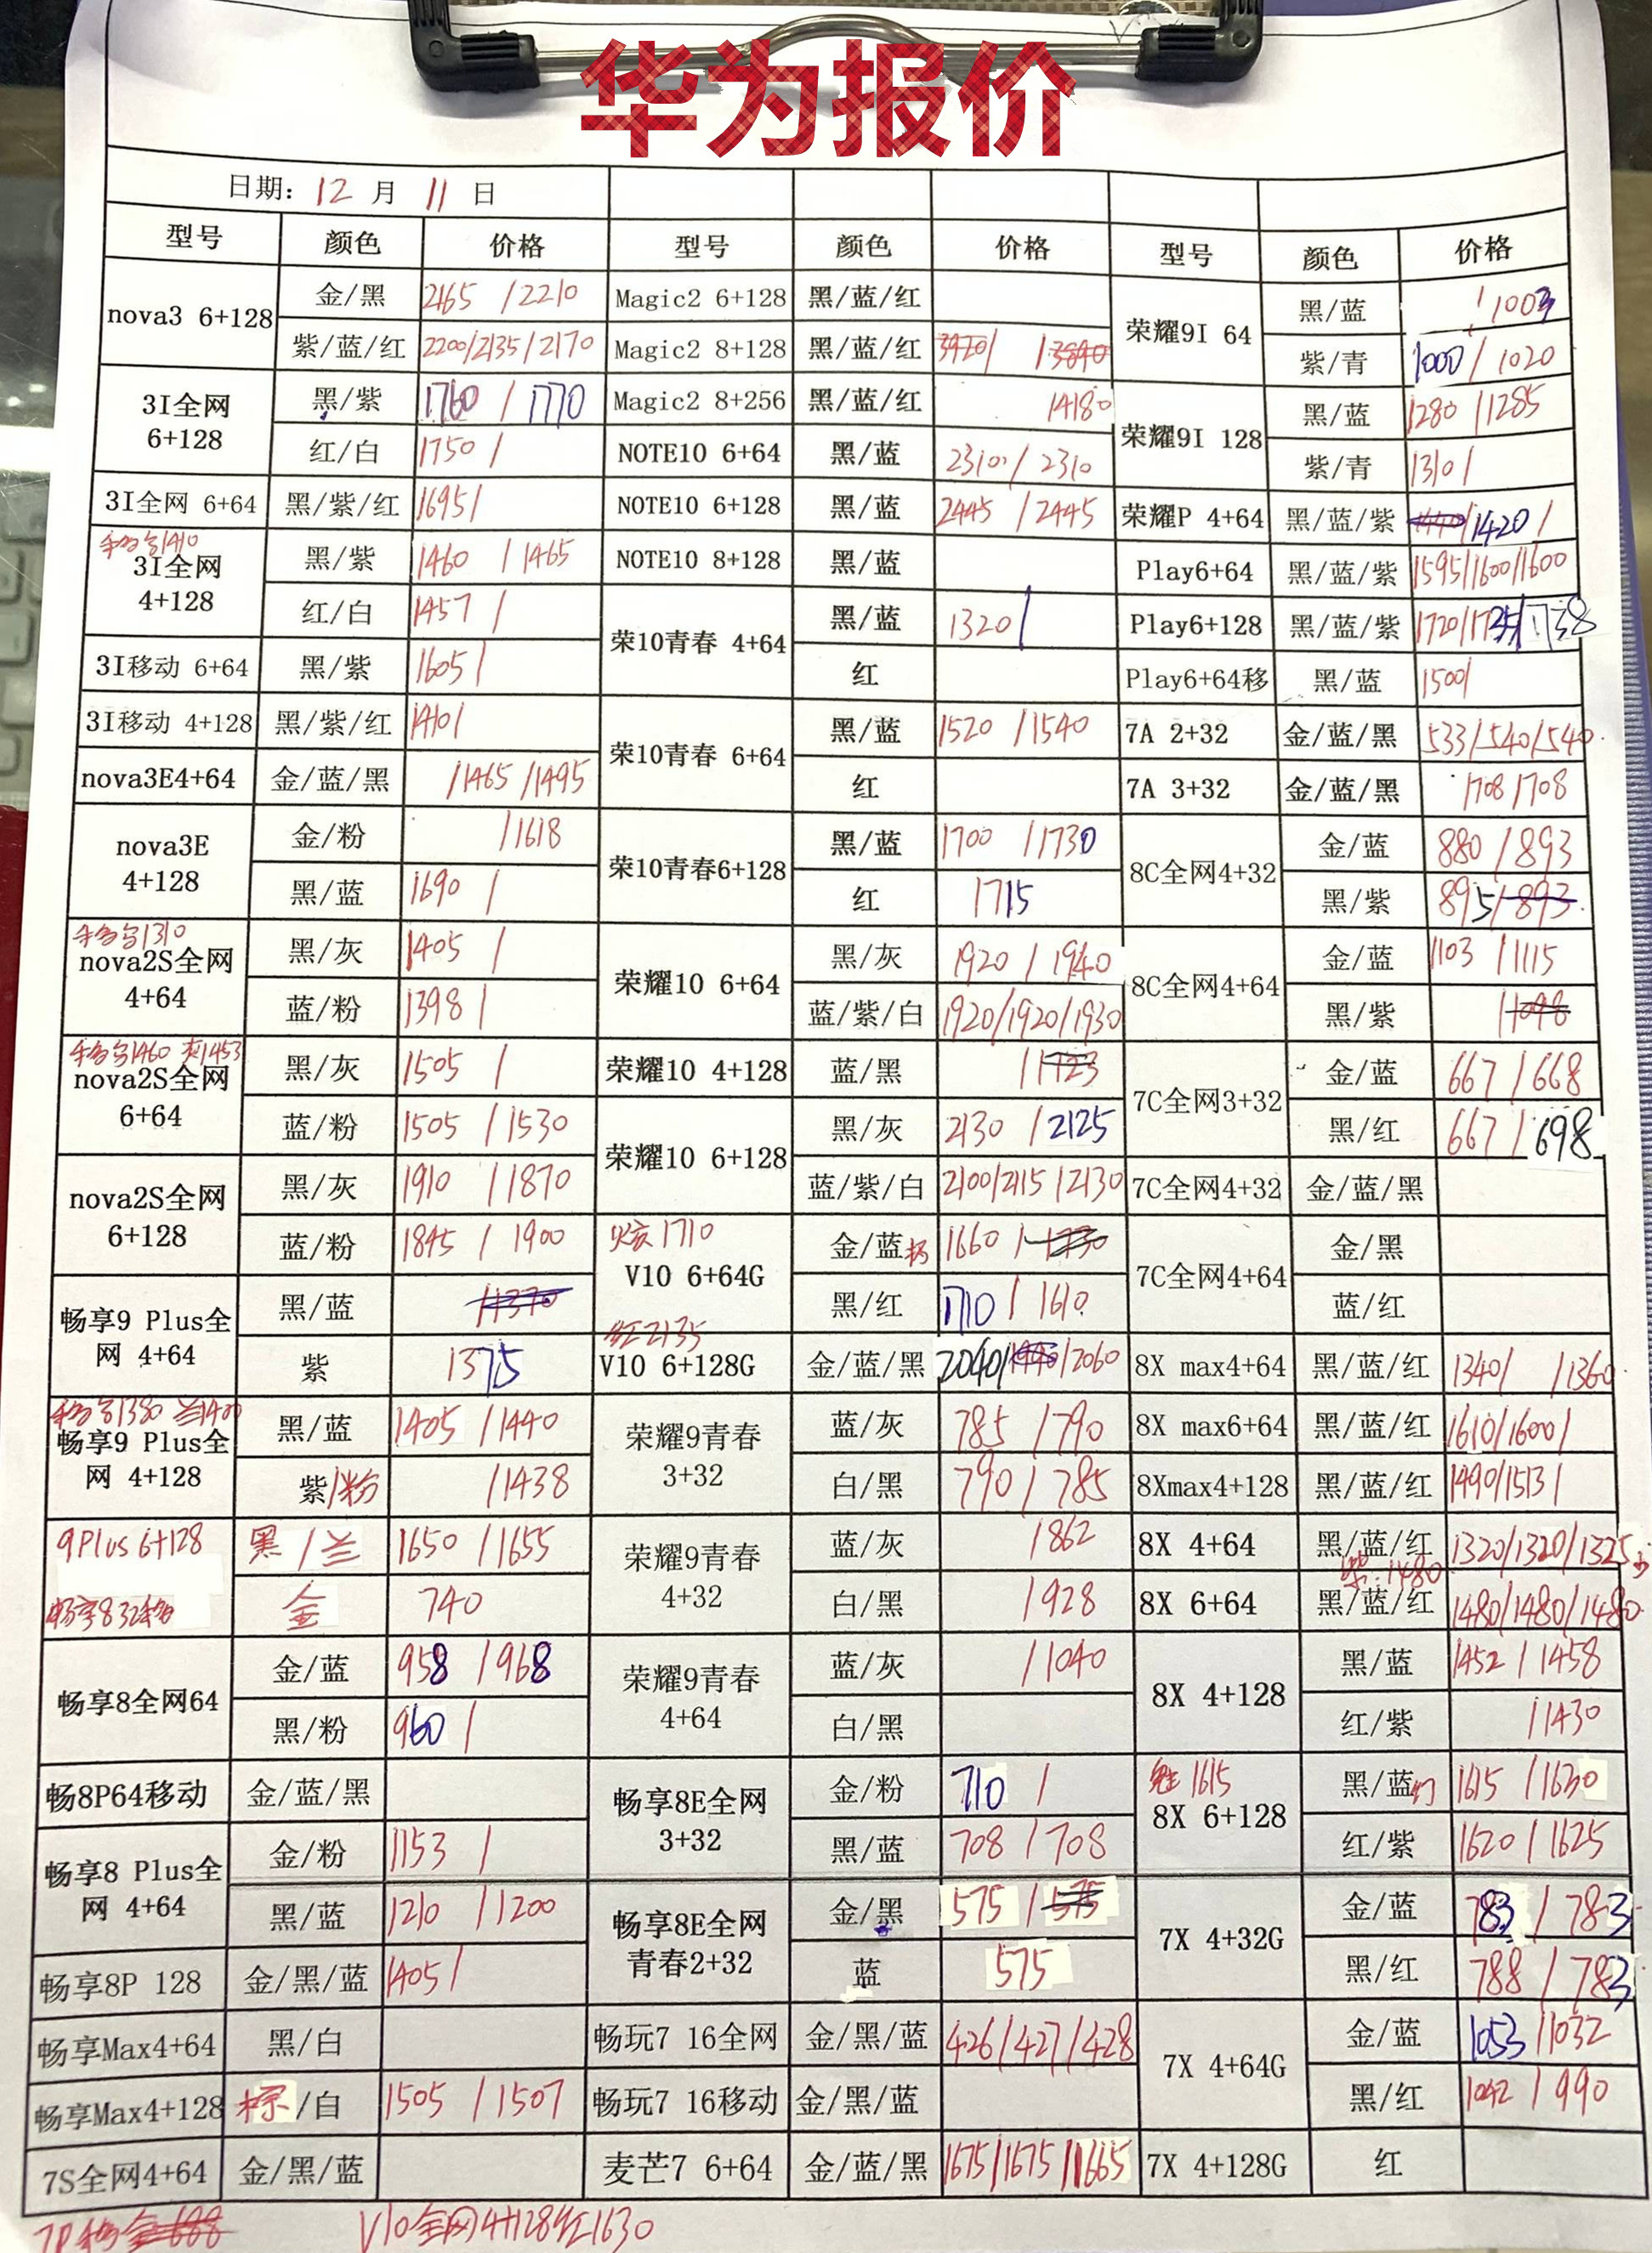 华为报价
日期: 12 月 11 日
型号 颜色 价格 型号 颜色 价格 型号 颜色 价格
nova3 6+128 金/黑 2165 /2210
紫/蓝/红 2200/2135/2170
3I全网 6+128 黑/紫 1760 / 1770
红/白 1750 /
3I全网 6+64 黑/紫/红 1695/
3I全网 4+128 黑/紫 1460 / 1465
红/白 1457 /
3I移动 6+64 黑/紫 1605/
3I移动 4+128 黑/紫/红 1410/
nova3E4+64 金/蓝/黑 /1465 /1495
nova3E 4+128 金/粉 /1618
黑/蓝 1690 /
nova2S全网 4+64 黑/灰 1405 /
蓝/粉 1398 /
nova2S全网 6+64 黑/灰 1505 /
蓝/粉 1505 /1530
nova2S全网 6+128 黑/灰 1910 /1870
蓝/粉 1845 / 1900
畅享9 Plus全网 4+64 黑/蓝 /1370
紫 1375
畅享9 Plus全网 4+128 黑/蓝 1405 /1440
紫/粉 /1438
9Plus 6+128 黑/兰 1650 /1655
畅享8 32移 金 740
畅享8全网64 金/蓝 958 /968
黑/粉 960 /
畅8P64移动 金/蓝/黑
畅享8 Plus全网 4+64 金/粉 1153 /
黑/蓝 1210 /1200
畅享8P 128 金/黑/蓝 1405/
畅享Max4+64 黑/白
畅享Max4+128 棕/白 1505 /1507
7S全网4+64 金/黑/蓝
Magic2 6+128 黑/蓝/红
Magic2 8+128 黑/蓝/红
Magic2 8+256 黑/蓝/红 /4180
NOTE10 6+64 黑/蓝 2310 / 2310
NOTE10 6+128 黑/蓝 2445 /2445
NOTE10 8+128 黑/蓝
荣10青春 4+64 黑/蓝 1320/
红
荣10青春 6+64 黑/蓝 1520 /1540
红
荣10青春6+128 黑/蓝 1700 /1730
红 1715
荣耀10 6+64 黑/灰 1920 / 1940
蓝/紫/白 1920/1920/1930
荣耀10 4+128 蓝/黑 /1723
荣耀10 6+128 黑/灰 2130 /2125
蓝/紫/白 2100/2115/2130
炫1710
V10 6+64G 金/蓝 1660 /1730
黑/红 1710 / 1610
红2135
V10 6+128G 金/蓝/黑 2040/ /2060
荣耀9青春 3+32 蓝/灰 785 /790
白/黑 790 / 785
荣耀9青春 4+32 蓝/灰 /862
白/黑 /928
荣耀9青春 4+64 蓝/灰 /1040
白/黑
畅享8E全网 3+32 金/粉 710 /
黑/蓝 708 /708
畅享8E全网 青春2+32 金/黑 575 /575
蓝 575
畅玩7 16全网 金/黑/蓝 426/427/428
畅玩7 16移动 金/黑/蓝
麦芒7 6+64 金/蓝/黑 1675/1675/1665
荣耀9I 64 黑/蓝 /1003
紫/青 1000 / 1020
荣耀9I 128 黑/蓝 1280 /1285
紫/青 1310 /
荣耀P 4+64 黑/蓝/紫 /1420 /
Play6+64 黑/蓝/紫 1595/1600/1600
Play6+128 黑/蓝/紫 1720/1735/1738
Play6+64移 黑/蓝 1500/
7A 2+32 金/蓝/黑 533/540/540
7A 3+32 金/蓝/黑 /708 /708
8C全网4+32 金/蓝 880 /893
黑/紫 895/893
8C全网4+64 金/蓝 1103 /1115
黑/紫 /1098
7C全网3+32 金/蓝 667 /668
黑/红 667 /698
7C全网4+32 金/蓝/黑
7C全网4+64 金/黑
蓝/红
8X max4+64 黑/蓝/红 1340/ /1360
8X max6+64 黑/蓝/红 1610/1600/
8Xmax4+128 黑/蓝/红 1490/1513/
8X 4+64 黑/蓝/红 1320/1320/1325
紫:1480
8X 6+64 黑/蓝/红 1480/1480/1480
8X 4+128 黑/蓝 1452 /1458
红/紫 /1430
8X 6+128 黑/蓝 1615 /1630
红/紫 1620 /1625
7X 4+32G 金/蓝 783 / 783
黑/红 788 / 783
7X 4+64G 金/蓝 1053 /1032
黑/红 1042 / 990
7X 4+128G 红
V10全网4+128红1630